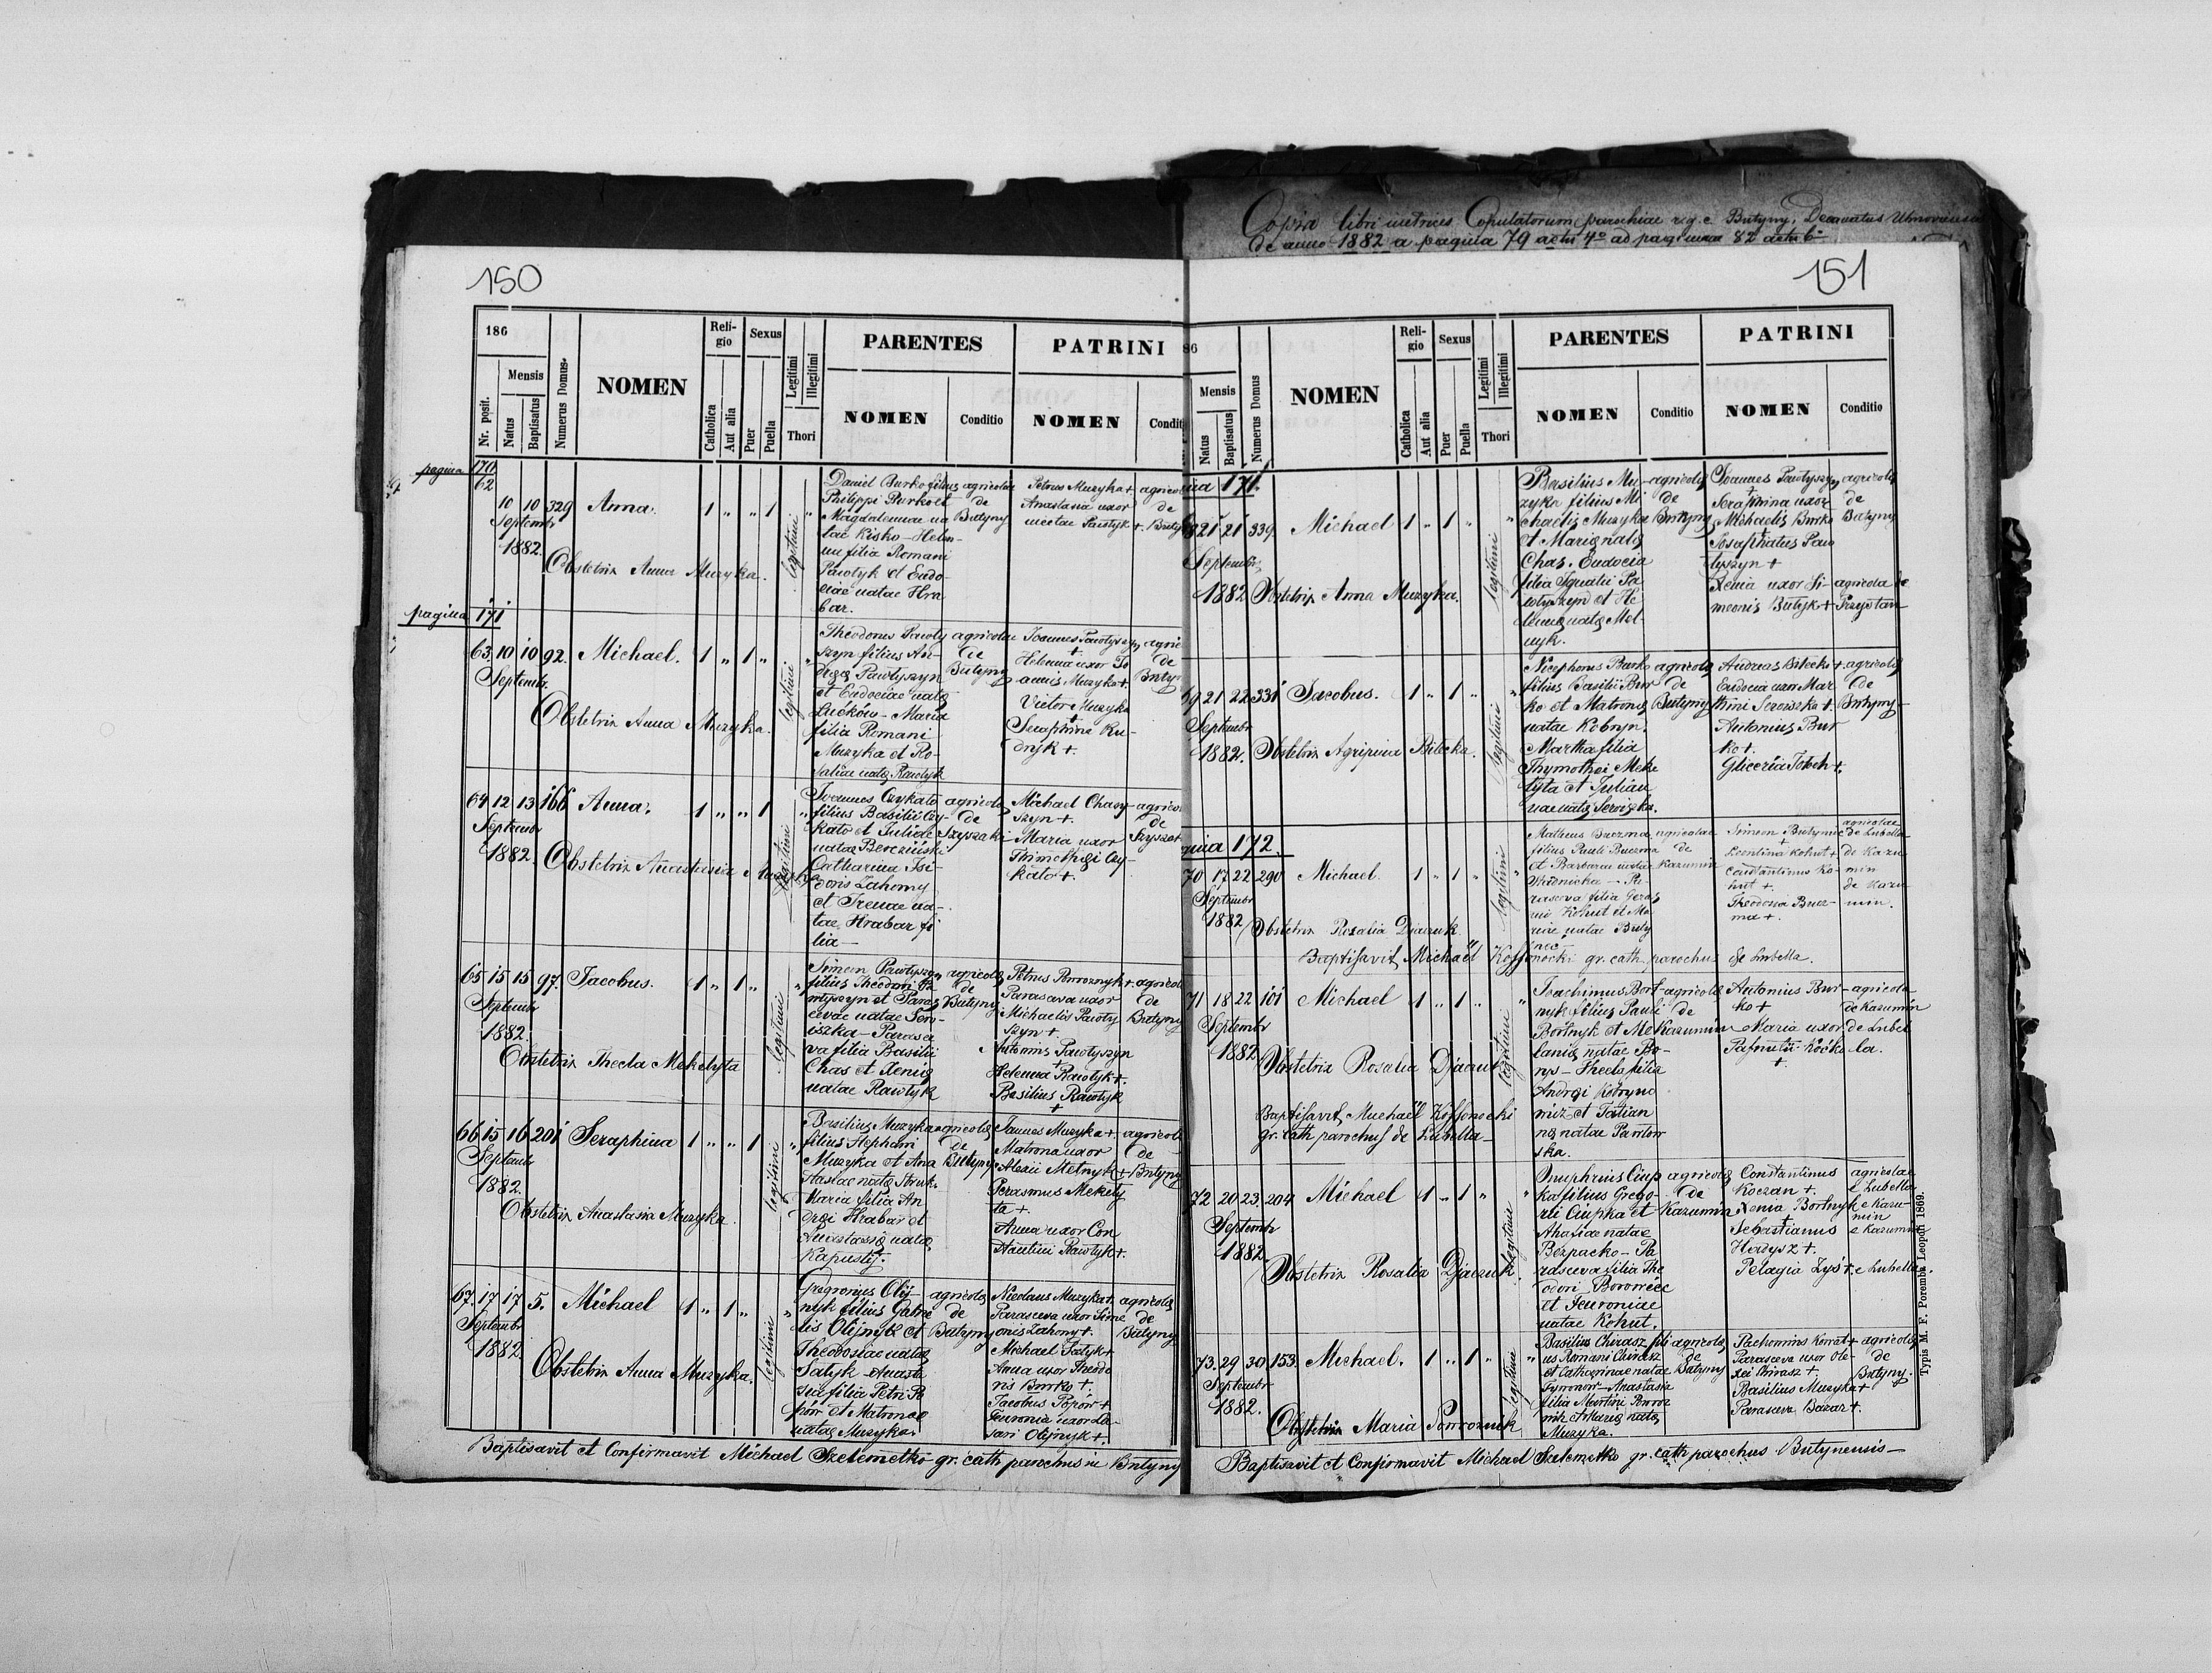 Copia libri metrices Copulatorum parochiae r. g. c. Butyny, Decanatus
de anno 1882 a pagina 79 actu 4º ad paginam 82 actu 6
150
186
Nr. posit.
Mensis
Natus
Baptisatus
Numerus Domus.
NOMEN
Religio
Catholica
Aut alia
Sexus
Puer
Puella
Legitimi
Illegitimi
Thori
PARENTES
NOMEN
Conditio
PATRINI
NOMEN
Condit
pagina 170
62
10 10 329 Anna. 1 " " 1
Septembr
1882.
Obstetrix Anna Muzyka.
legitimi
Daniel Burko filius
Philippi Burko et
Magdalennae na
tae Kisko - Hele-
na filia Romani
Pawtyk et Eudo-
ciae natae Hra
bar.
agricolae
de
Butyny
Petrus Muzyka +
Anastasia uxor
agricol
de
Butyny
pagina 171
63. 10 10 92. Michael. 1 " 1 "
Septembr.
Obstetrix Anna Muzyka.
legitimi
Theodorus Pawty
szyn filius An-
dreae Pawtyszyn
et Eudociae natae
Lućków - Maria
filia Romani
Muzyka et Ro-
saliae natae Rawtyk
agricolae
de
Butyny
Joannes Pawtyszyn
+
Helenna uxor Jo
annis Muzyka +.
Victor Muzyka
+
Seraphina Ru-
dnyk +.
agric
de
Buty
64 12 13 166 Anna. 1 " " 1
Septembr
1882.
Obstetrix Anastasia
legitimi
Joannes Czykato
filius Basilii Czy-
kato et Juliae
natae
Catharina Isi-
doris Zahorny
et Irenae na-
tae Hrabar fi
lia -
agricolae
de
Michael Chary-
szyn +.
Maria uxor
Thimothei Czy-
kato +.
agrico
de
65 15 15 97. Jacobus. 1 " 1 "
Septembr
1882.
Obstetrix Thecla Mekelyta
legitimi
Simeon Pawtyszyn
filius Theodori Pa
wtyszyn et Paras
cevae natae Ser-
wiszka - Parasce
va filia Basilii
Chas et Xeniae
natae Rawtyk
agricolae
de
Butyny
Petrus Poworoznyk +
Parasceva uxor
Michaelis Pawty
szyn +
Antonius Pawtyszyn
+
Helenna Rawtyk +.
Basilius Rawtyk
+
agricol
de
Butyny
66 15 16 201 Seraphina 1 " " 1
Septembr
1882.
Obstetrix Anastasia Muzyka.
legitimi
Basilius Muzyka
filius Stephani
Muzyka et Ana
stasiae natae
Maria filia An
dreae Hrabar et
Anastasiae natae
Kapustij.
agricolae
de
Butyny
Joannes Muzyka +.
Matrona uxor
Alexii Melnyk +
Perasmus Mekely
ta +
Anna uxor Con
stantini Rawtyk +.
agricol
de
Butyny
67. 17 17 5. Michael 1 " 1 "
Septembr
1882
Obstetrix Anna Muzyka.
legitimi
Gregorius Olij-
nyk filius Gabrie
lis Olijnyk et
Theodosiae natae
Satyk - Anasta
sia filia Petri Po
pów et Matronae
natae Muzyka.
agricolae
de
Butyny
Nicolaus Muzyka +.
Parasceva uxor Sime
onis Zahorny +.
Michael Satyk +
Anna uxor Theodo
ris Burko +.
Jacobus Popów +
Fewronia uxor La-
zari Olijnyk +.
agricolae
de
Butyny
Baptisavit et Confirmavit Michael Szelemetko gr. cath parochus in Butyny
151
86
Mensis
Natus
Baptisatus
Numerus Domus
NOMEN
Religio
Catholica
Aut alia
Sexus
Puer
Puella
Legitimi
Illegitimi
Thori
PARENTES
NOMEN
Conditio
PATRINI
NOMEN
Conditio
ina 171.
8 21 21 339. Michael 1 " 1 "
Septembr.
1882 Obstetrix Anna Muzyka.
legitimi
Basilius Mu-
zyka filius Mi
chaelis Muzyka
et Mariae natae
Chas. Eudocia
filia Ignatii Pa
wtyszyn et He
lennae natae Mel-
nyk.
agricolae
de
Butyny
Joannes Pawtyszyn
+
Seraphina uxor
Michaelis Burko
Josaphatus Paw
tyszyn +
Xenia uxor Si-
meonis Butyk +
agricolae
de
Butyny
agricola de
Przystan-
69 21 22 331 Jacobus. 1 " 1 "
Septembr
1882. Obstetrix Agripina Bilecka.
legitimi
Nicephorus Burko
filius Basilii Bur
ko et Matronae
natae Kobryn.
Martha filia
Thymothei Meke
lyta et Julian
nae natae Serwiszka.
agricolae
de
Butyny
Andreas Bilecki +.
Eudocia uxor Mar
thini Serwiszka +.
Antonius Bur
ko +.
Gliceria +.
agricolae
de
Butyny -
ina 172.
70 17 22 290 Michael. 1 " 1 "
Septembr
1882 Obstetrix Rosalia Djaczuk
legitimi
Matheus Buczma
filius Pauli Buczma
et Barbarae natae
- Pa-
rasceva filia Gera
simi Kohut et Ma
riae natae Buty
niec -
agricolae
de
Kazumin
Simeon Butyniec
+
Leontina Kohut +
Constantinus Ko-
hut +.
Theodosia Bucz-
ma +.
agricolae
de Lubella
de Kazu
min
de Kazu
min.
Baptisavit Michaël Kossonocki gr. cath. parochus de Lubella.
71 18 22 101 Michael 1 " 1 "
Septembr
1882 Obstetrix Rosalia Djaczuk
legitimi
Joachimus Bort-
nyk filius Pauli
Bortnyk et Me
laniae natae Bo-
rys - Thecla filia
Andreae Kotryno
wicz et Tatian
nae natae Pawlow
ska.
agricolae
de
Kazumin
Antonius Bur-
ko +
Maria uxor
Pafnutii Koćko
+
agricola
de Kazumin
de Lubel
la.
Baptisavit Michaël Kossonocki
gr. cath parochus de Lubella -
72 20 23. 204 Michael 1 " 1 "
Septembr
1882
Obstetrix Rosalia Djaczuk.
legitimi
Onuphrius Ciup
ka filius Grego-
rii Ciupka et
Ahafiae natae
Bezpacko - Pa
rasceva filia The
odori Borowiec
et Feuroniae
natae Kohut.
agricolae
de
Kazumin
Constantinus
Koczan +.
Xenia Bortnyk
+
Sebastianus
Hordysz +.
Pelagia Zyś +.
agricolae
e Lubella
e Kazu-
min
e Kazumin
e Lubella.
73. 29 30 153. Michael. 1 " 1 "
Septembr
1882.
Obstetrix Maria Poworoznik
legitimi
Basilius Chirasz fili
us Romani Chirasz
et Catharinae natae
- Anastasia
filia Martini Poworoz
nik et Mariae natae
Muzyka.
agricolae
de
Butyny
Pachomius +
Parasceva uxor Ole-
xii Chirasz +.
Basilius Muzyka +
Parasceva Bazar +.
agricolae
de
Butyny.
Baptisavit et Confirmavit Michael Szelemetko gr. cath parochus Butynensis -
Typis M. F. Poremba Leopoli 1869.